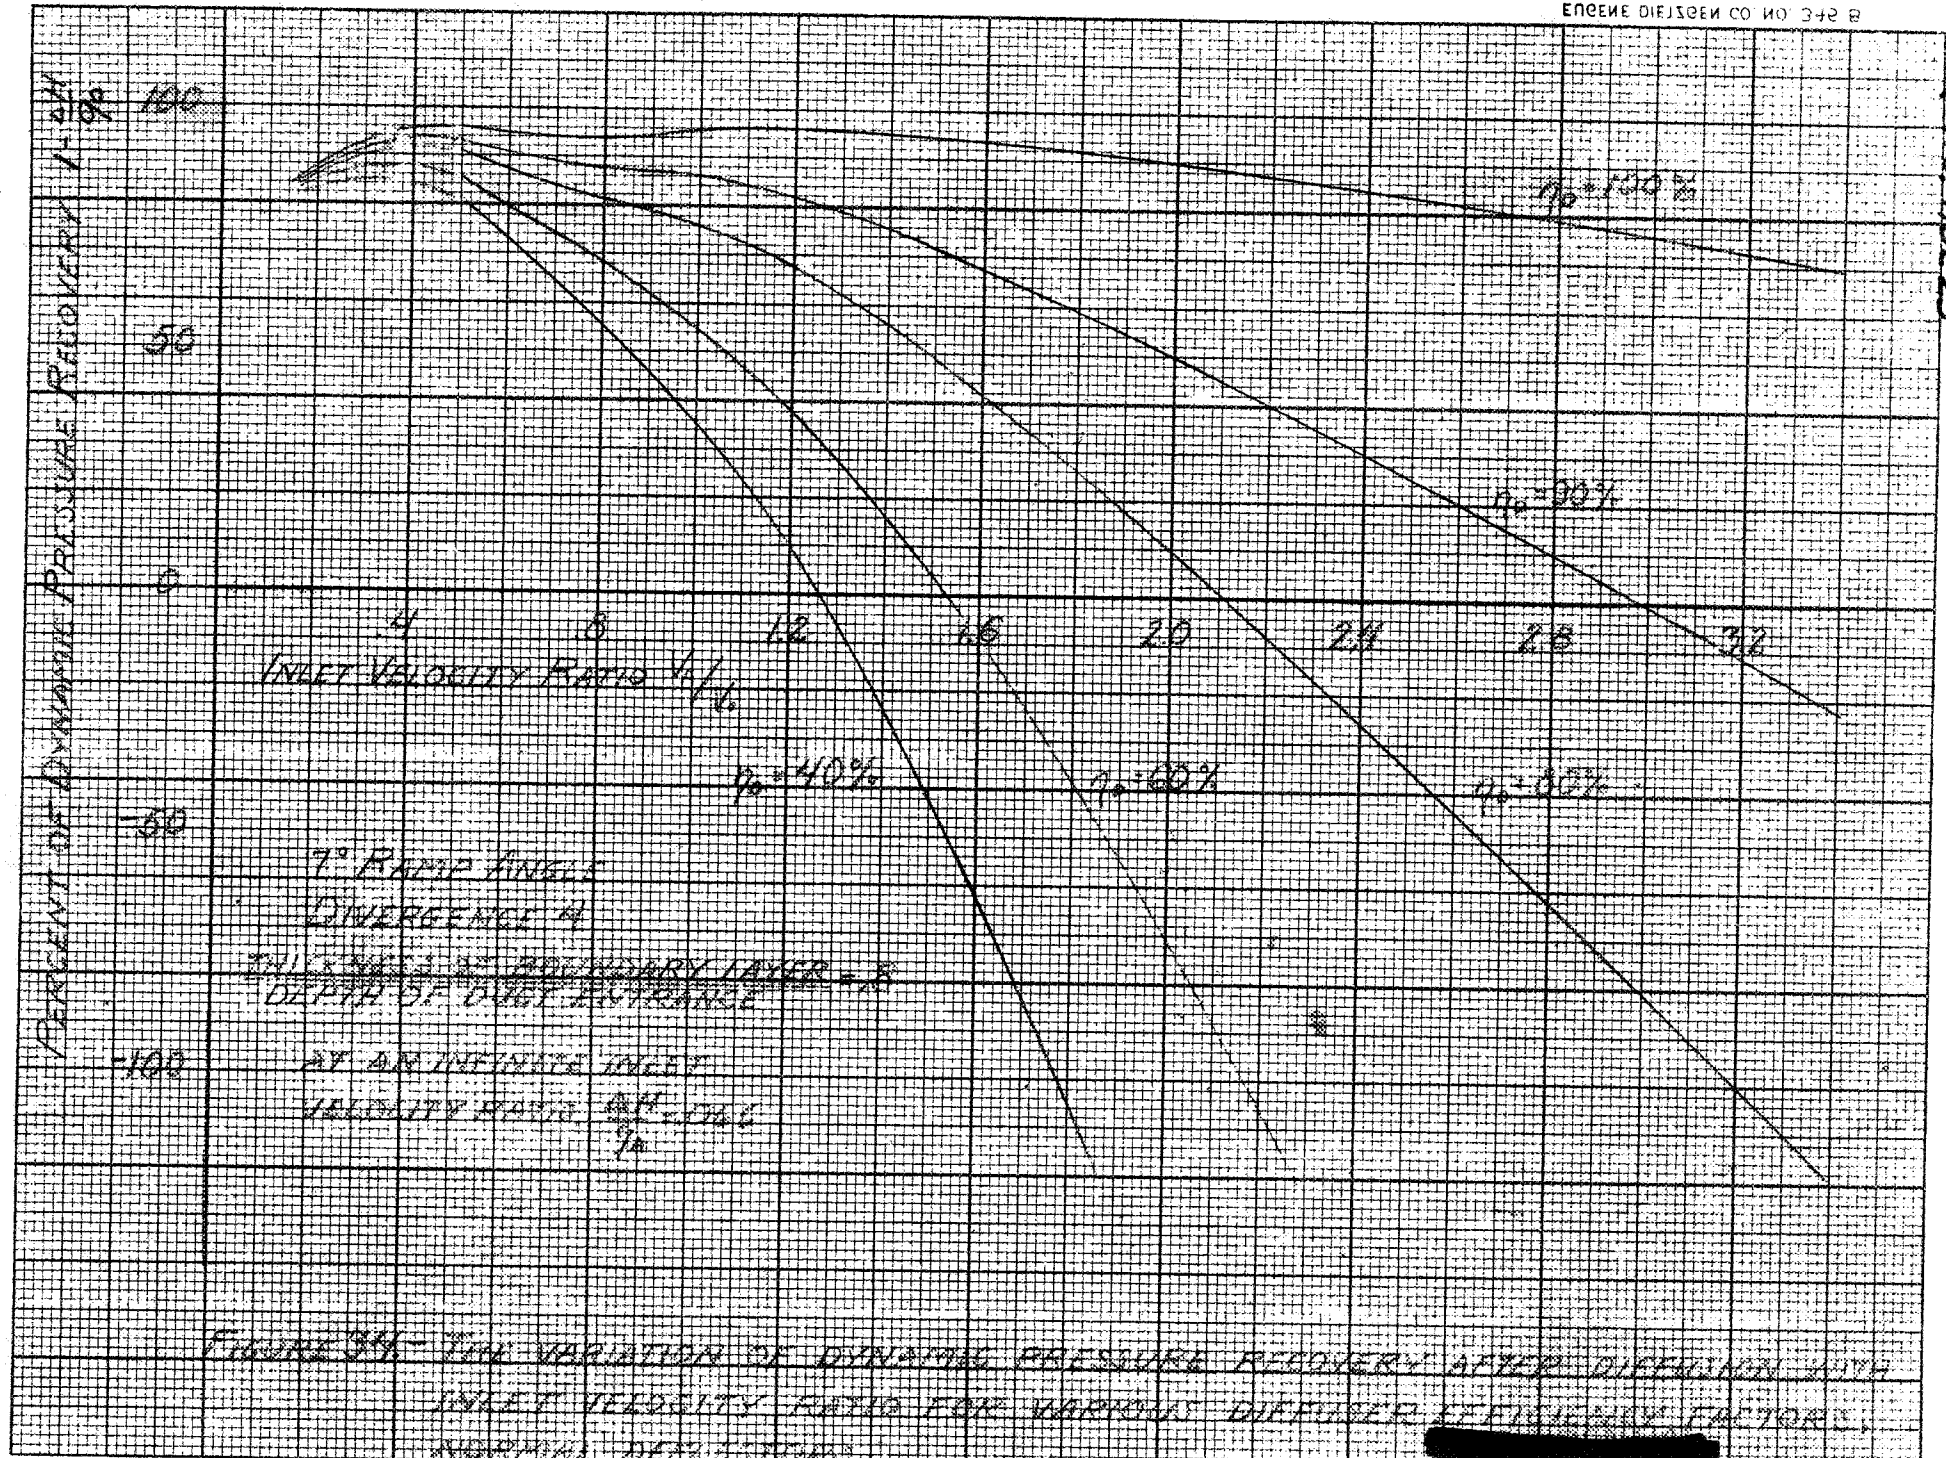 EUGENE DIETZGEN CO. NO. 346 B
PERCENT OF DYNAMIC PRESSURE RECOVERY 1-ΔH/q₀
100
50
0
-50
-100
.4 .8 1.2 1.6 2.0 2.4 2.8 3.2
INLET VELOCITY RATIO V₁/V₀
η_D=100%
η_D=90%
η_D=40%
η_D=60%
η_D=80%
7° RAMP ANGLE
DIVERGENCE 4
THICKNESS OF BOUNDARY LAYER = .8
DEPTH OF DUCT ENTRANCE
AT AN INFINITE INLET
VELOCITY RATIO, ΔH
FIGURE 34.- THE VARIATION OF DYNAMIC PRESSURE RECOVERY AFTER DIFFUSION WITH
INLET VELOCITY RATIO FOR VARIOUS DIFFUSER EFFICIENCY FACTORS,
NORMAL DEFLECTORS